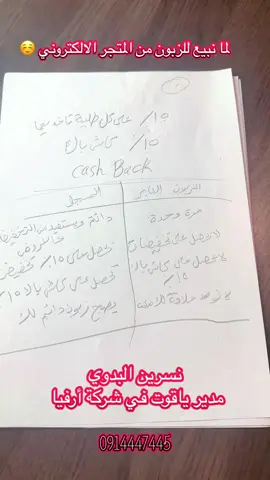 لما نبيع للزبون من المتجر الالكتروني ☺️
١٥٪ على كل طلبية تاخديها
١٥٪ كاش باك
cash Back
الزبون العابر
المسجل
مرة وحدة
دائم ويستفيد من التخفيضات
لا يحصل على تخفيضات
يحصل على ١٥٪ تخفيض
لا يحصل على كاش باك
١٥٪
يحصل على كاش باك ١٥٪
لا توجد علاقة
يصبح زبون دائم لك
نسرين البدوي
مدير ياقوت في شركة أرفيا
0914447445